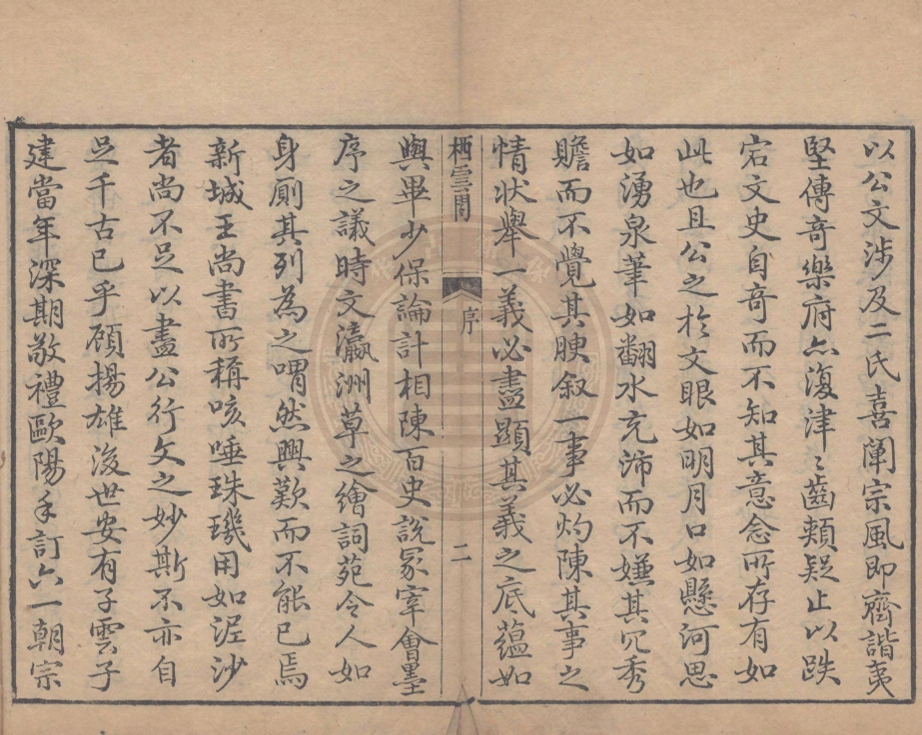 以公文涉及二氏喜闡宗風即齊諧夷
堅傳奇樂府亦復津〻齒頰疑止以跌
宕文史自奇而不知其意念所存有如
此也且公之於文眼如明月口如懸河思
如湧泉筆如翻水充沛而不嫌其冗秀
贍而不覺其腴叙一事必灼陳其事之
情狀舉一義必盡顯其義之底蘊如
栖雲閣 序 二
與畢少保論計相陳百史說冢宰會墨
序之議時文瀛洲草之繪詞苑令人如
身廁其列為之喟然興歎而不能已焉
新城王尚書所稱咳唾珠璣用如泥沙
者尚不足以盡公行文之妙斯不亦自
足千古已乎顧揚雄後世安有子雲子
建當年深期敬禮歐陽手訂六一朝宗